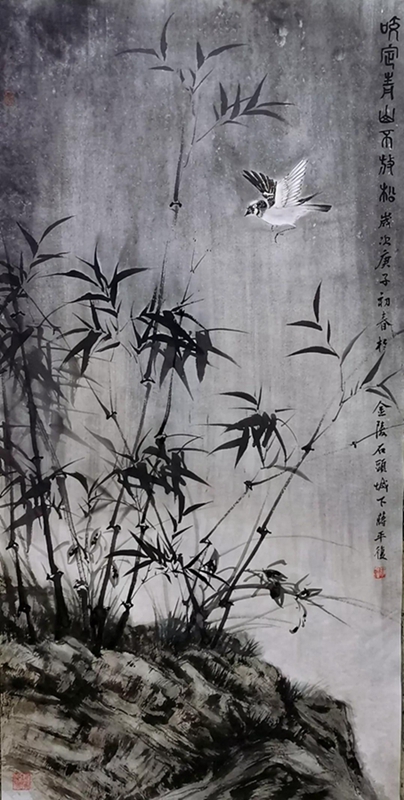 咬定青山不放松歲次庚子初春於金陵石頭城下蔣平復